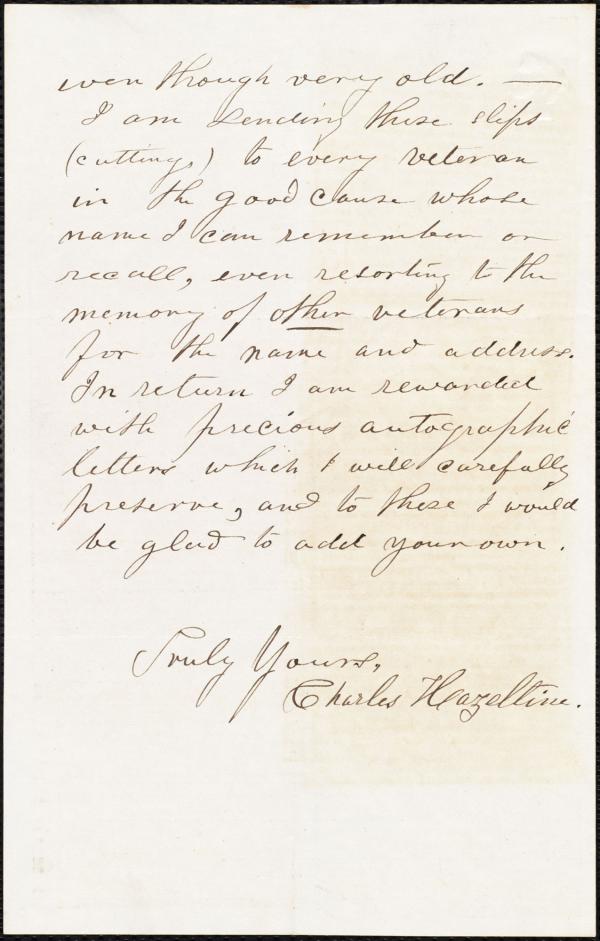 even though very old. —
I am sending these slips
(cuttings,) to every veteran
in the good cause whose
name I can remember or
recall, even resorting to the
memory of other veterans
for the name and address.
In return I am rewarded
with precious autographic
letters which I will carefully
preserve, and to these I would
be glad to add your own.
Truly Yours,
Charles Hazeltine.